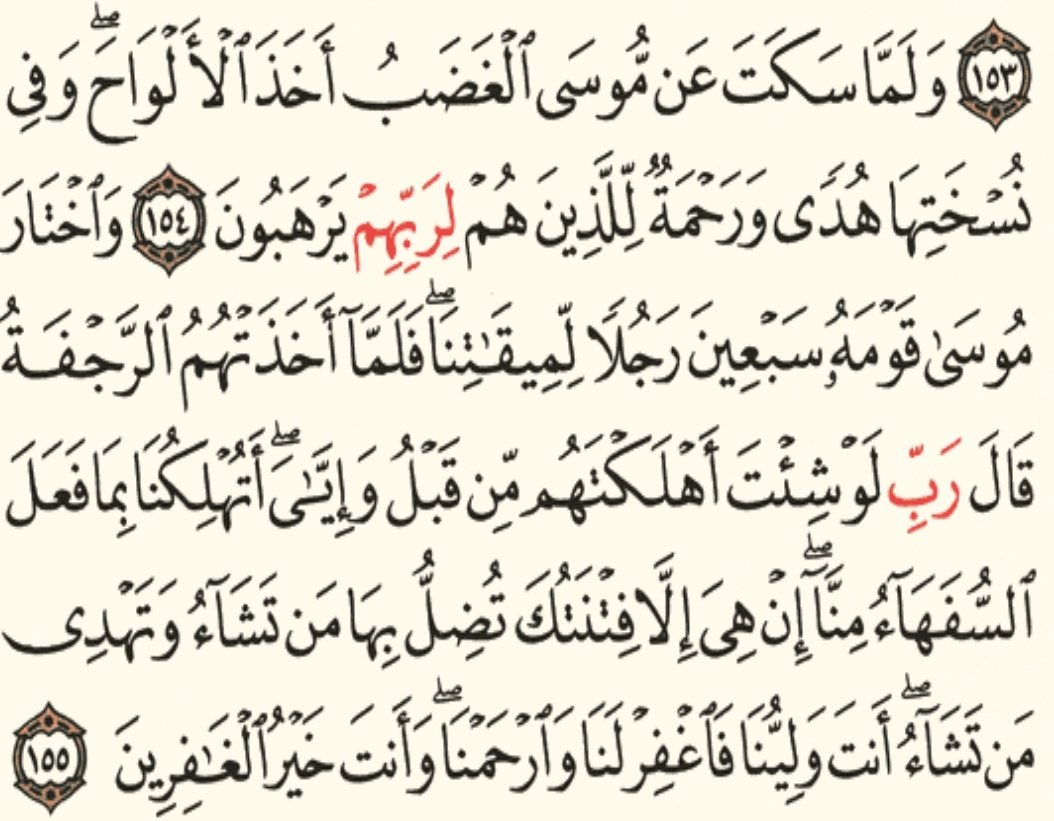 ١٥٣ وَلَمَّا سَكَتَ عَن مُّوسَى ٱلْغَضَبُ أَخَذَ ٱلْأَلْوَاحَ ۖ وَفِى
نُسْخَتِهَا هُدًى وَرَحْمَةٌ لِّلَّذِينَ هُمْ لِرَبِّهِمْ يَرْهَبُونَ ١٥٤ وَٱخْتَارَ
مُوسَىٰ قَوْمَهُۥ سَبْعِينَ رَجُلًا لِّمِيقَٰتِنَا ۖ فَلَمَّآ أَخَذَتْهُمُ ٱلرَّجْفَةُ
قَالَ رَبِّ لَوْ شِئْتَ أَهْلَكْتَهُم مِّن قَبْلُ وَإِيَّٰىَ ۖ أَتُهْلِكُنَا بِمَا فَعَلَ
ٱلسُّفَهَآءُ مِنَّآ ۖ إِنْ هِىَ إِلَّا فِتْنَتُكَ تُضِلُّ بِهَا مَن تَشَآءُ وَتَهْدِى
مَن تَشَآءُ ۖ أَنتَ وَلِيُّنَا فَٱغْفِرْ لَنَا وَٱرْحَمْنَا ۖ وَأَنتَ خَيْرُ ٱلْغَٰفِرِينَ ١٥٥